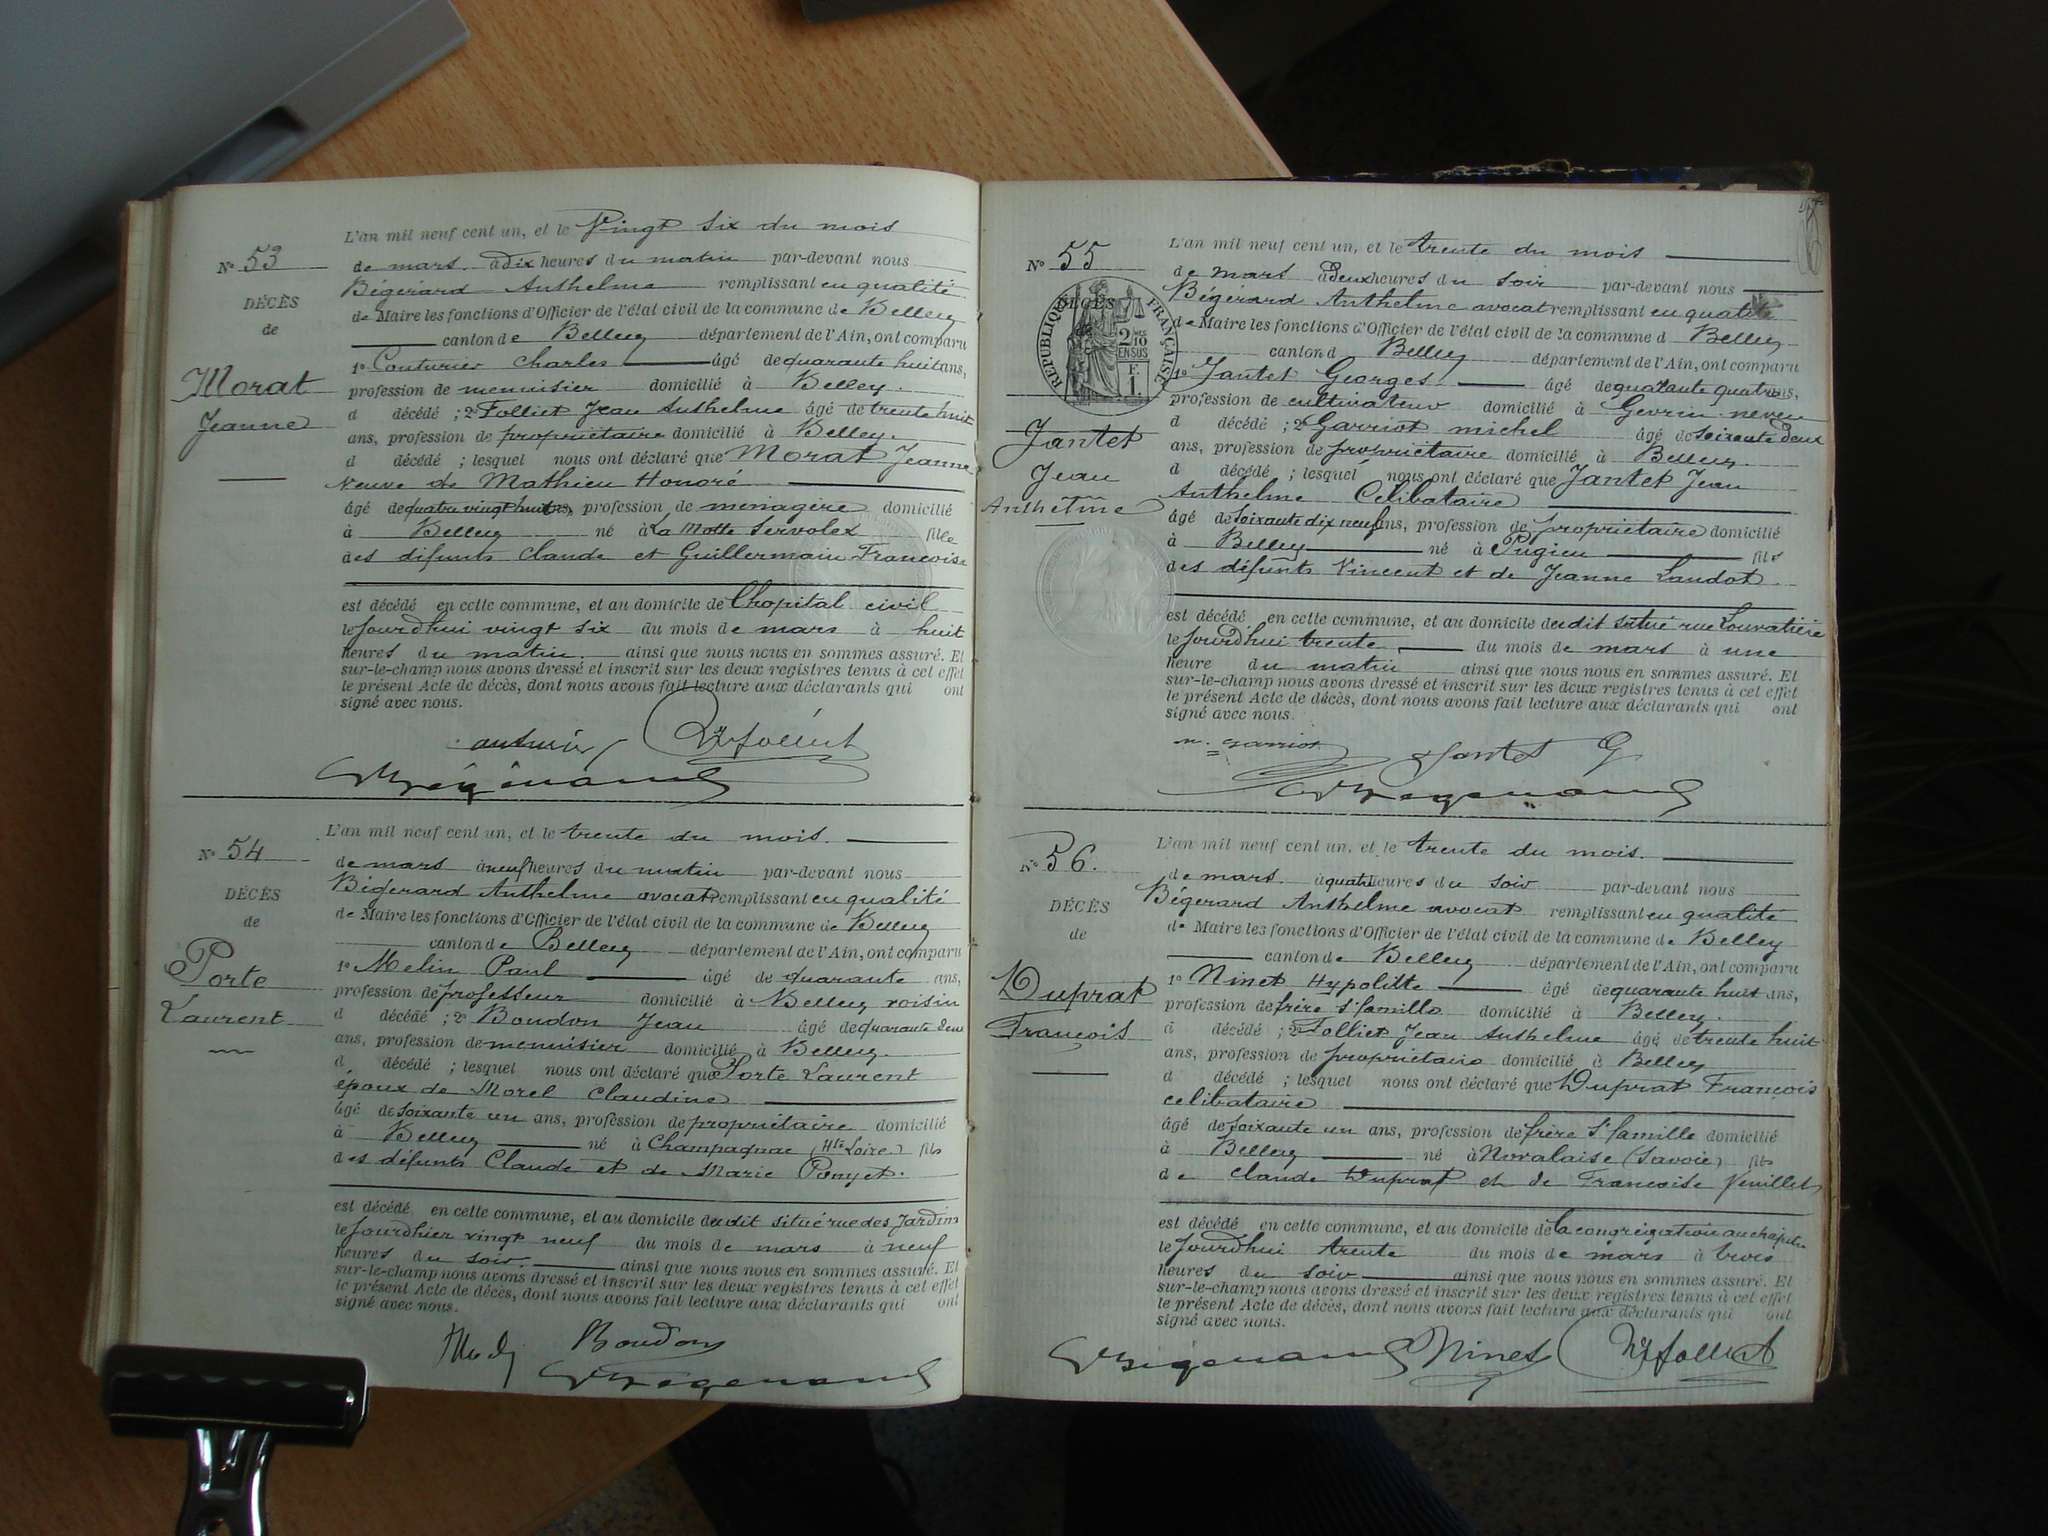 L'an mil neuf cent un, et le Vingt six du mois
N° 53
de mars à dix heures du matin par-devant nous
Bégérard Anthelme remplissant en qualité
DÉCÈS
de Maire les fonctions d'Officier de l'état civil de la commune de Belley
de
canton de Belley département de l'Ain, ont comparu
1° Couturier Charles âgé de quarante huit ans,
Morat
profession de menuisier domicilié à Belley.
d décédé ; 2° Folliet Jean Anthelme âgé de trente huit
Jeanne
ans, profession de propriétaire domicilié à Belley.
d décédé ; lesquel nous ont déclaré que Morat Jeanne
Veuve de Mathieu Honoré
âgé de quatre vingt huit ans, profession de menagère domicilié
à Belley né à La Motte Servolex fille
des défunts Claude et Guillermain Francoise
est décédé en cette commune, et au domicile de l'hopital civil
le jourdhui vingt six du mois de mars à huit
heures du matin. ainsi que nous nous en sommes assuré. Et
sur-le-champ nous avons dressé et inscrit sur les deux registres tenus à cet effet
le présent Acte de décès, dont nous avons fait lecture aux déclarants qui ont
signé avec nous.
Bégérard
L'an mil neuf cent un, et le trente du mois.
N° 54
de mars à neuf heures du matin par-devant nous
Bégérard Anthelme avocat remplissant en qualité
DÉCÈS
de Maire les fonctions d'Officier de l'état civil de la commune de Belley
de
canton de Belley département de l'Ain, ont comparu
1° Melin Paul âgé de quarante ans,
Porte
profession de professeur domicilié à Belley voisin
Laurent
d décédé ; 2° Boudon Jean âgé de quarante deux
ans, profession de menuisier domicilié à Belley.
d décédé ; lesquel nous ont déclaré que Porte Laurent
époux de Morel Claudine
âgé de soixante un ans, profession de propriétaire domicilié
à Belley né à Champagnac (Hte Loire) fils
des défunts Claude et de Marie Ponyet.
est décédé en cette commune, et au domicile dudit situé rue des Jardins
le jourdhier vingt neuf du mois de mars à neuf
heures du soir. ainsi que nous nous en sommes assuré. Et
sur-le-champ nous avons dressé et inscrit sur les deux registres tenus à cet effet
le présent Acte de décès, dont nous avons fait lecture aux déclarants qui ont
signé avec nous.
Boudon
Bégérard
L'an mil neuf cent un, et le trente du mois
N° 55
de mars à deux heures du soir par-devant nous
Bégérard Anthelme avocat remplissant en qualité
DÉCÈS
RÉPUBLIQUE FRANÇAISE
2/10 EN SUS
F. 1
de Maire les fonctions d'Officier de l'état civil de la commune d Belley
canton d Belley département de l'Ain, ont comparu
1° Jantet Georges âgé de quarante quatre ans,
profession de cultivateur domicilié à Gevrin neveu
Jantet
d décédé ; 2° Garriot michel âgé de soixante deux
ans, profession de propriétaire domicilié à Belley.
Jean
d décédé ; lesquel nous ont déclaré que Jantet Jean
Anthelme
Anthelme Celibataire
âgé de soixante dix neuf ans, profession de propriétaire domicilié
à Belley né à Pugieu fils
des défunts Vincent et de Jeanne Laudot
est décédé en cette commune, et au domicile dudit situé rue Louvatière
le jourdhui trente du mois de mars à une
heure du matin ainsi que nous nous en sommes assuré. Et
sur-le-champ nous avons dressé et inscrit sur les deux registres tenus à cet effet
le présent Acte de décès, dont nous avons fait lecture aux déclarants qui ont
signé avec nous.
m. garriot Jantet G
Bégérard
L'an mil neuf cent un, et le trente du mois.
N° 56.
de mars à quatre heures du soir par-devant nous
Bégérard Anthelme avocat remplissant en qualité
DÉCÈS
de Maire les fonctions d'Officier de l'état civil de la commune de Belley
de
canton de Belley département de l'Ain, ont comparu
1° Ninet Hypolitte âgé de quarante huit ans,
Duprat
profession de frère Ste famille domicilié à Belley.
François
d décédé ; 2° Folliet Jean Anthelme âgé de trente huit
ans, profession de propriétaire domicilié à Belley
d décédé ; lesquel nous ont déclaré que Duprat François
celibataire
âgé de soixante un ans, profession de frère Ste famille domicilié
à Belley né à Novalaise (Savoie) fils
de Claude Duprat et de Francoise Veuillet
est décédé en cette commune, et au domicile de la congrégation
le jourdhui trente du mois de mars à trois
heures du soir ainsi que nous nous en sommes assuré. Et
sur-le-champ nous avons dressé et inscrit sur les deux registres tenus à cet effet
le présent Acte de décès, dont nous avons fait lecture aux déclarants qui ont
signé avec nous.
Bégérard Ninet